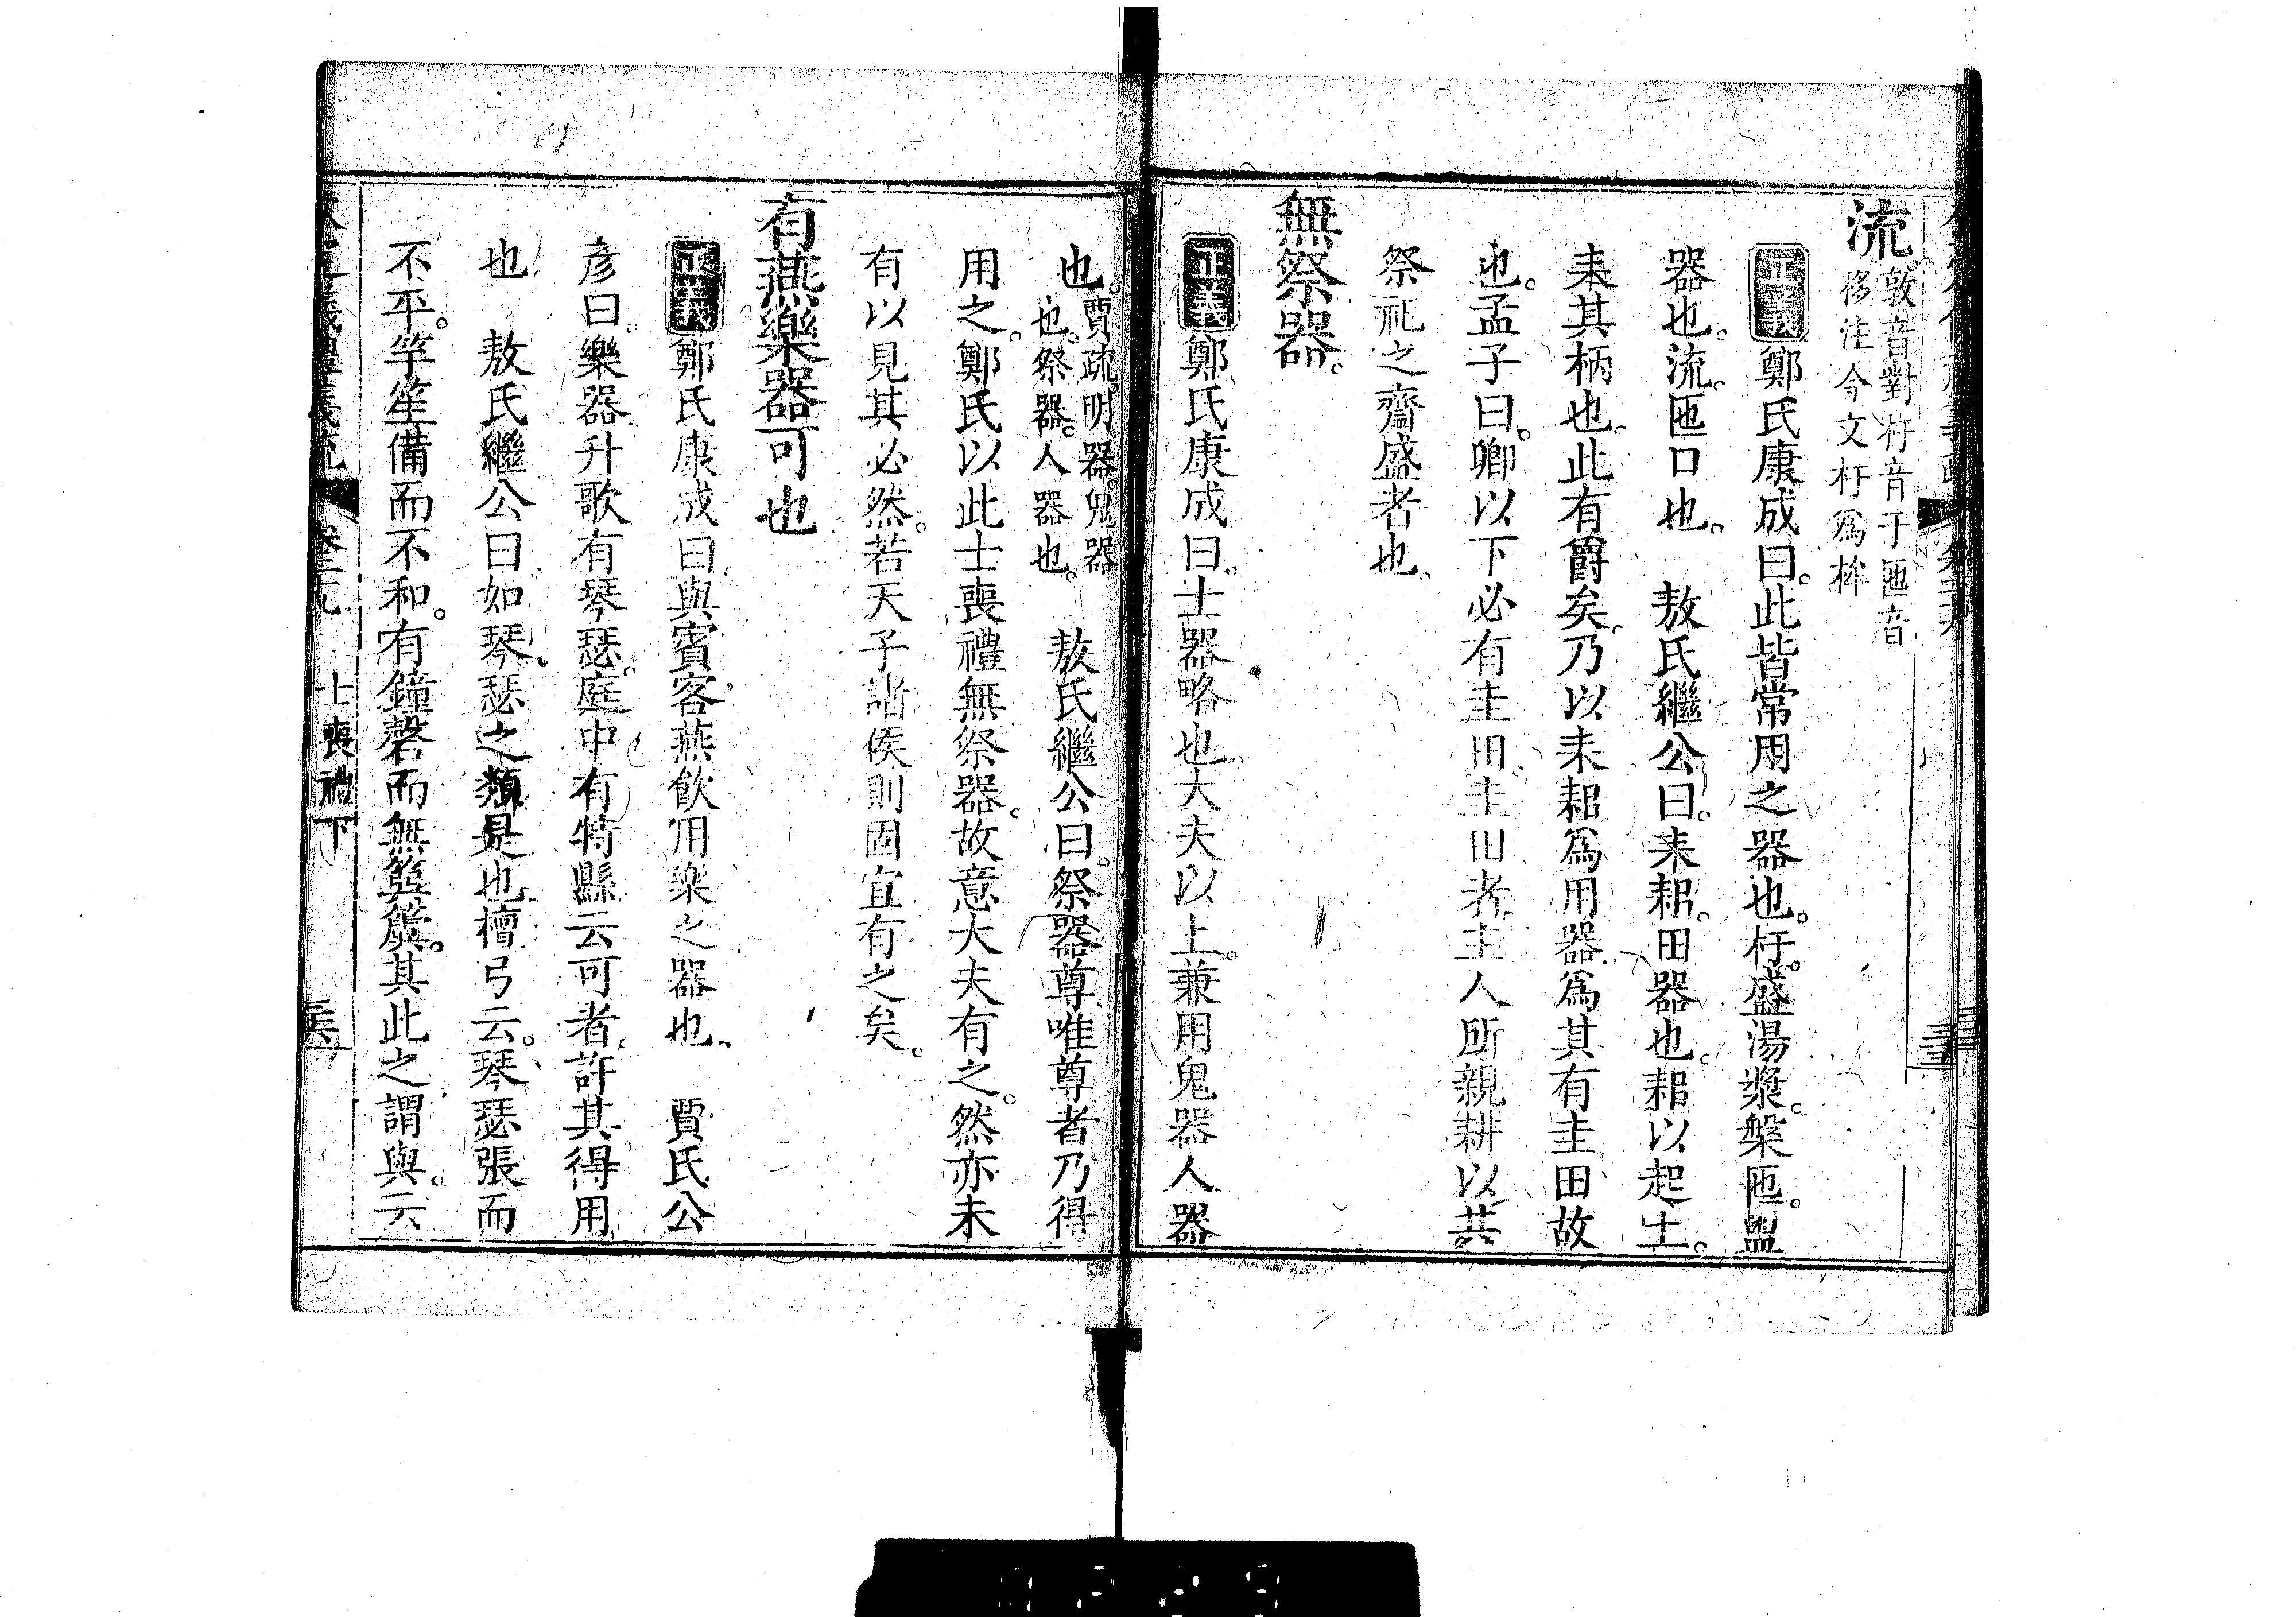 流。敦音對杅音于匜音
移注今文杅爲桙
正義鄭氏康成曰。此皆常用之器也。杅。盛湯漿。槃匜。盥
器也。流。匜口也。 敖氏繼公曰。耒耜。田器也。耜以起土。
耒其柄也。此有爵矣。乃以耒耜爲用器。爲其有圭田故
也。孟子曰。卿以下必有圭田。圭田者。主人所親耕以共
祭祀之齋盛者也。
無祭器。
正義鄭氏康成曰。士器略也。大夫以上。兼用鬼器人器
也。賈疏。明器。鬼器
也。祭器。人器也。 敖氏繼公曰。祭器尊。唯尊者乃得
用之。鄭氏以此士喪禮無祭器。故意大夫有之。然亦未
有以見其必然。若天子諸侯。則固宜有之矣。
有燕樂器可也
正義鄭氏康成曰。與賓客燕飲用樂之器也。 賈氏公
彥曰。樂器。升歌有琴瑟。庭中有特縣。云可者。許其得用
也 敖氏繼公曰。如琴瑟之類是也。檀弓云。琴瑟張而
不平。竽笙備而不和。有鐘磬而無簨簴。其此之謂與。云
義禮義疏 士喪禮下